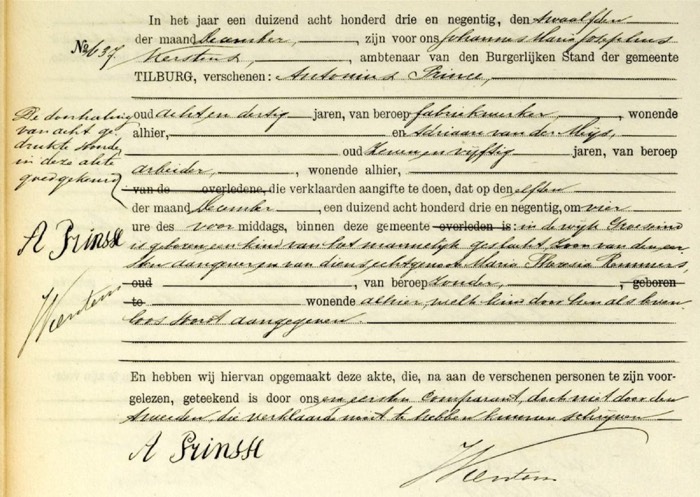 In het jaar een duizend acht honderd drie en negentig, den twaalfden
No. 637.
der maand December, zijn voor ons Johannes Maria Josephus
Kerstens, ambtenaar van den Burgerlijken Stand der gemeente
TILBURG, verschenen: Antonius Prince,
De doorhaling
van acht ge-
drukte woorden
in deze akte
goedgekeurd
oud acht en dertig jaren, van beroep fabriekwerker, wonende
alhier, en Adriaan van der
oud zeven en vijftig jaren, van beroep
arbeider, wonende alhier,
van de overledene, die verklaarden aangifte te doen, dat op den elfden
der maand December, een duizend acht honderd drie en negentig, om vier
ure des voor middags, binnen deze gemeente overleden is: in de wijk Groeseind
is geboren een kind van het mannelijk geslacht, zoon van den eer-
sten aangever en van diens echtgenoote Maria Theresia Rommers,
oud, van beroep zonder, geboren
te wonende alhier, welk kind door hen als leven-
loos wordt aangegeven.
A Prinsse
En hebben wij hiervan opgemaakt deze akte, die, na aan de verschenen personen te zijn voor-
gelezen, geteekend is door ons en eersten Comparant, doch niet door den
tweeden, die verklaarde niet te hebben kunnen schrijven
A Prinsse